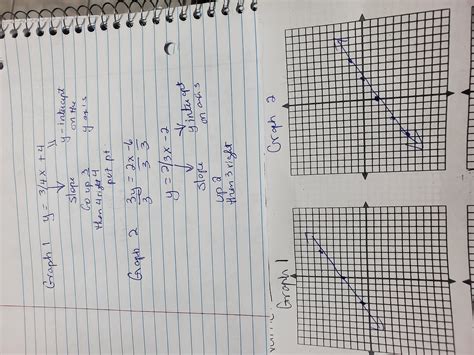 Graph 1 y = 3/4x + 4
slope
y-intercept
on the
y axis
Go up 3
then right 4
put pt
Graph 2 3y/3 = 2x/3 - 6/3
y = 2/3x - 2
slope
y intercept
on axis
up 2
then 3 right
Graph 1
Graph 2